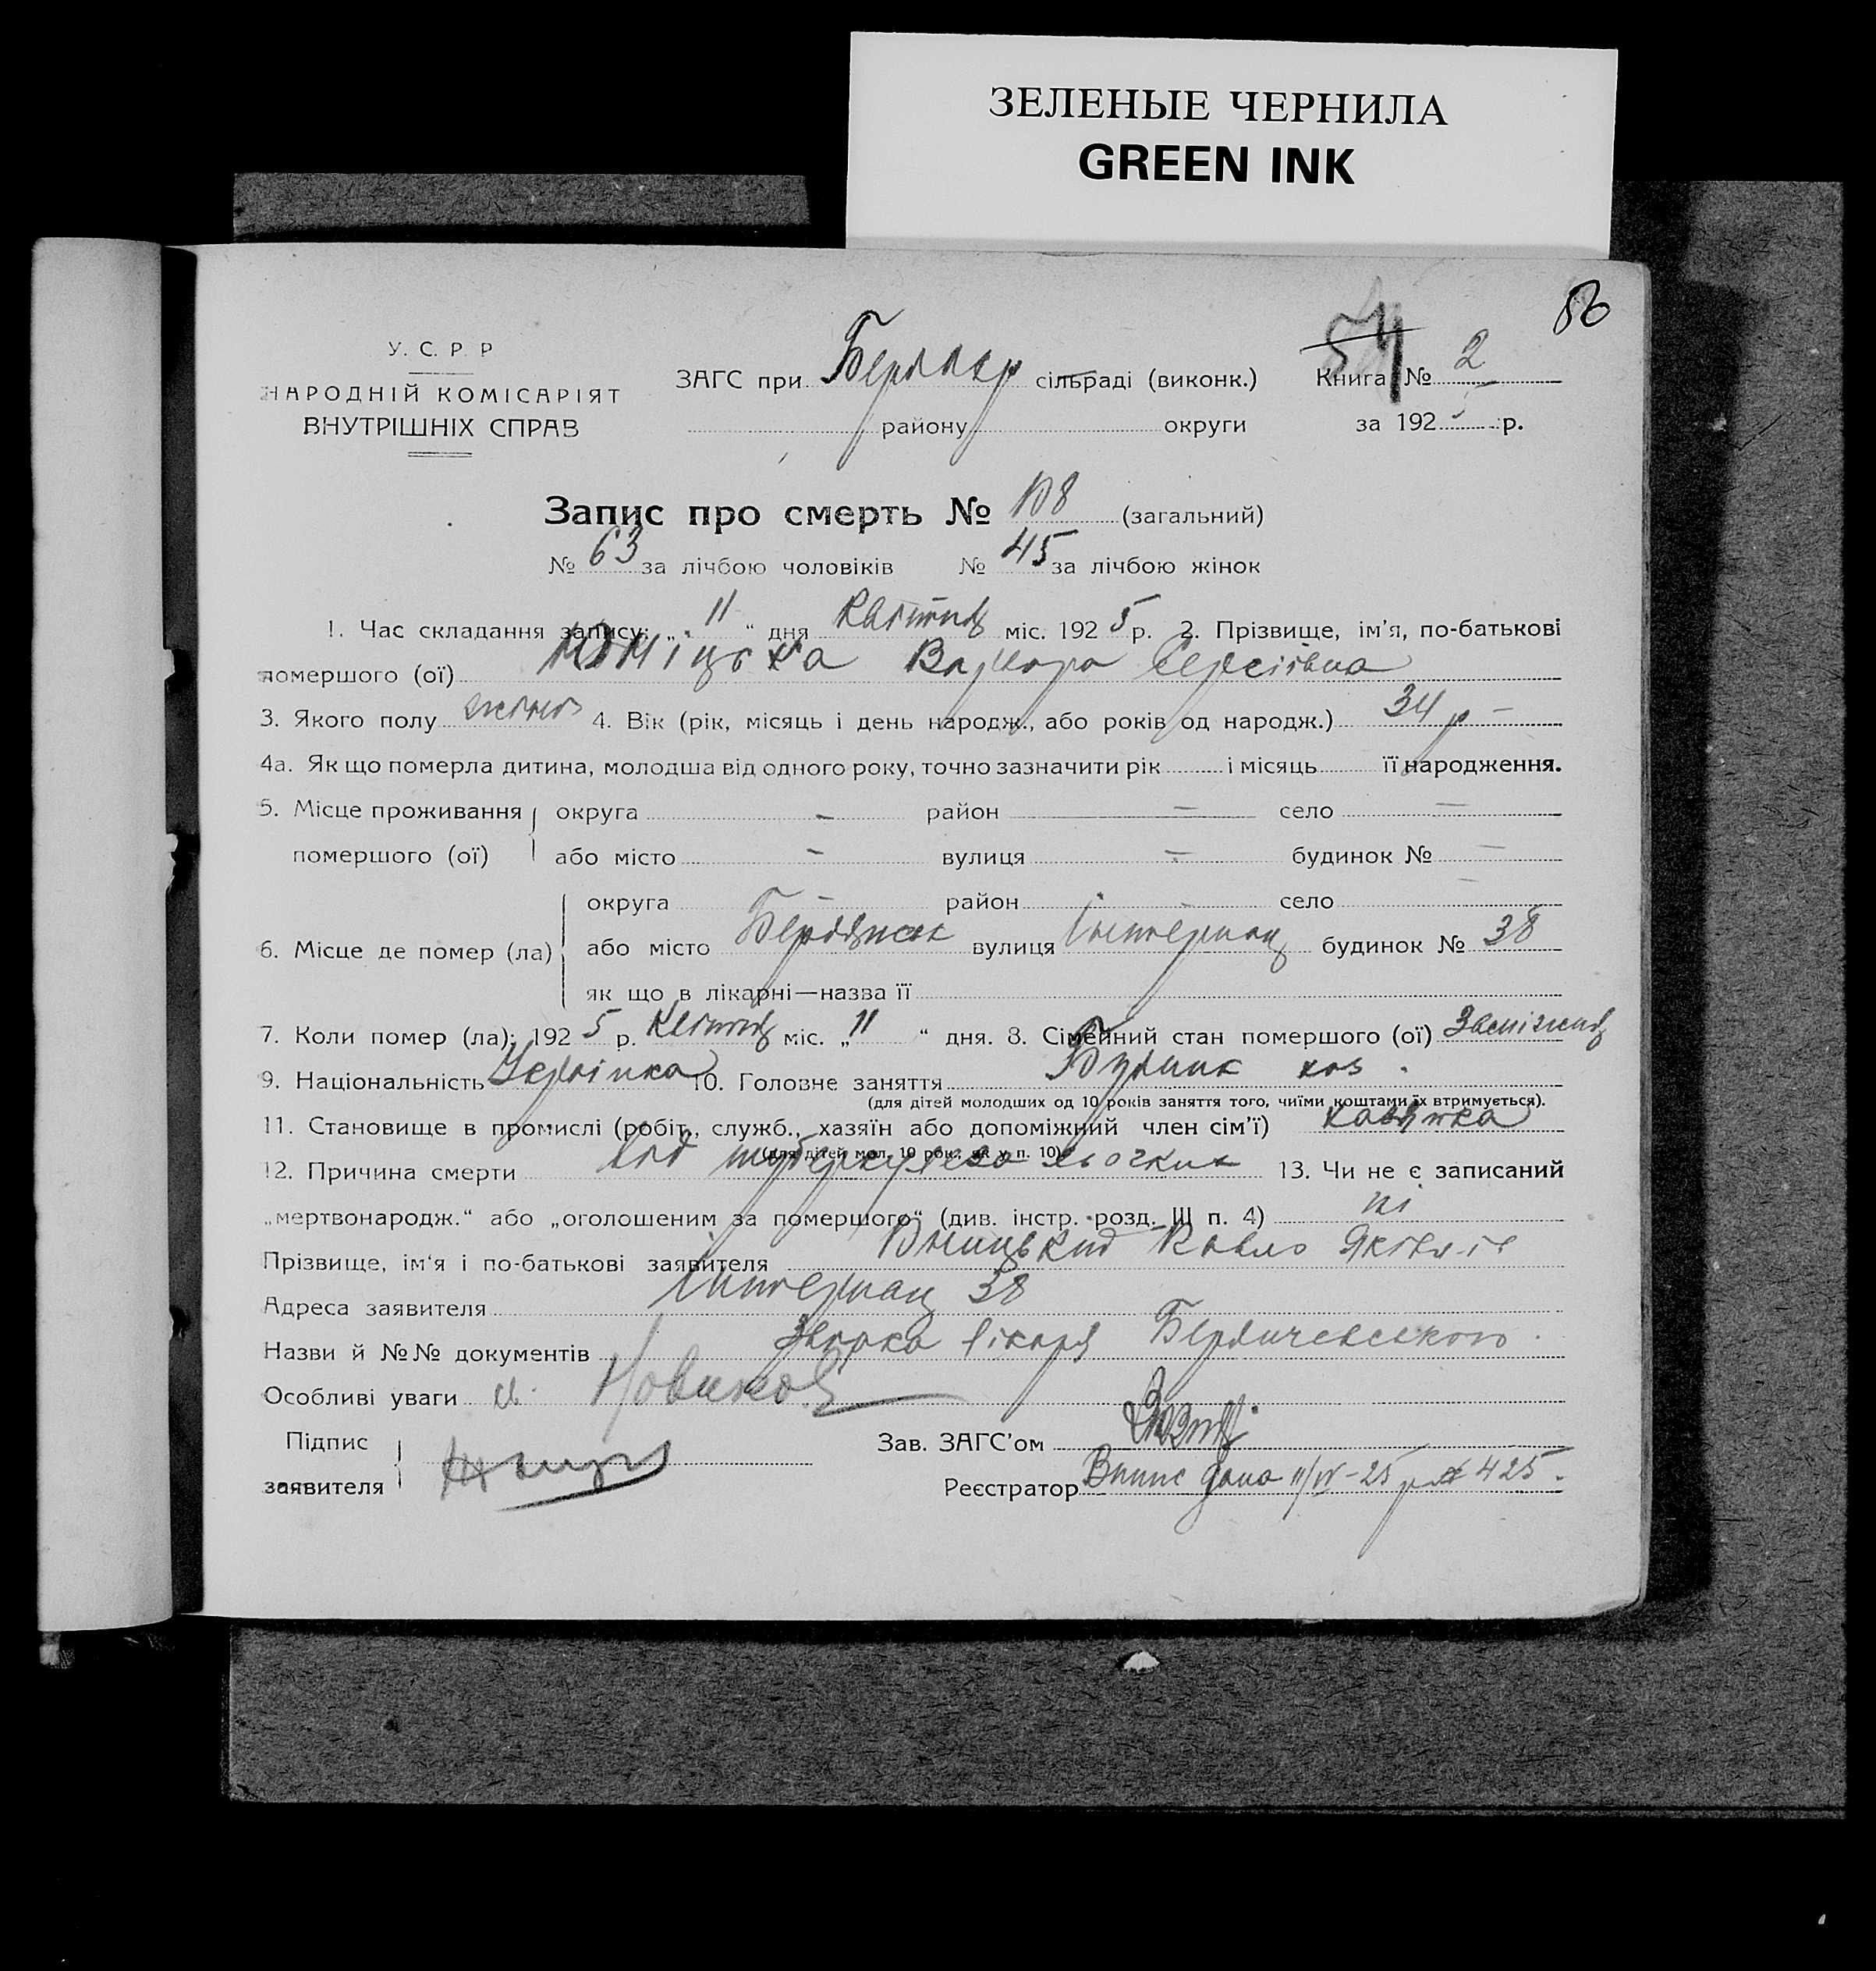 ЗЕЛЕНЫЕ ЧЕРНИЛА
GREEN INK
У. С. Р. Р
НАРОДНІЙ КОМІСАРІЯТ
ВНУТРІШНІХ СПРАВ
ЗАГС при сільраді (виконк.)
району округи
54
Книга № 2
за 1925 р.
Запис про смерть № 108 (загальний)
№ 63 за лічбою чоловіків № 45 за лічбою жінок
1. Час складання запису: „11“ дня Квітня міс. 1925 р. 2. Прізвище, ім'я, по-батькові
помершого (ої) Сергіївна
3. Якого полу 4. Вік (рік, місяць і день народж., або років од народж.) 34 р –
4а. Як що померла дитина, молодша від одного року, точно зазначити рік і місяць її народження.
5. Місце проживання округа – район – село –
помершого (ої) або місто – вулиця – будинок № –
округа – район – село –
6. Місце де помер (ла) або місто Бердянськ вулиця Інтернац будинок № 38
як що в лікарні—назва її
7. Коли помер (ла): 1925 р. Квітня міс. „11“ дня. 8. Сімейний стан помершого (ої) Заміжня
9. Національність Українка 10. Головне заняття
(для дітей молодших од 10 років заняття того, чиїми коштами їх втримується).
11. Становище в промислі (робіт., служб., хазяїн або допоміжний член сім'ї)
(для дітей мол. 10 рок., як у п. 10)
12. Причина смерти од туберкульоза 13. Чи не є записаний
„мертвонародж.“ або „оголошеним за помершого“ (див. інстр. розд. III п. 4) ні
Прізвище, ім'я і по-батькові заявителя
Адреса заявителя Інтернац 38
Назви й №№ документів лікаря Бердичевського
Особливі уваги
Підпис
заявителя
Зав. ЗАГС'ом
Реєстратор Випис дано 11/IV-25 р № 425.